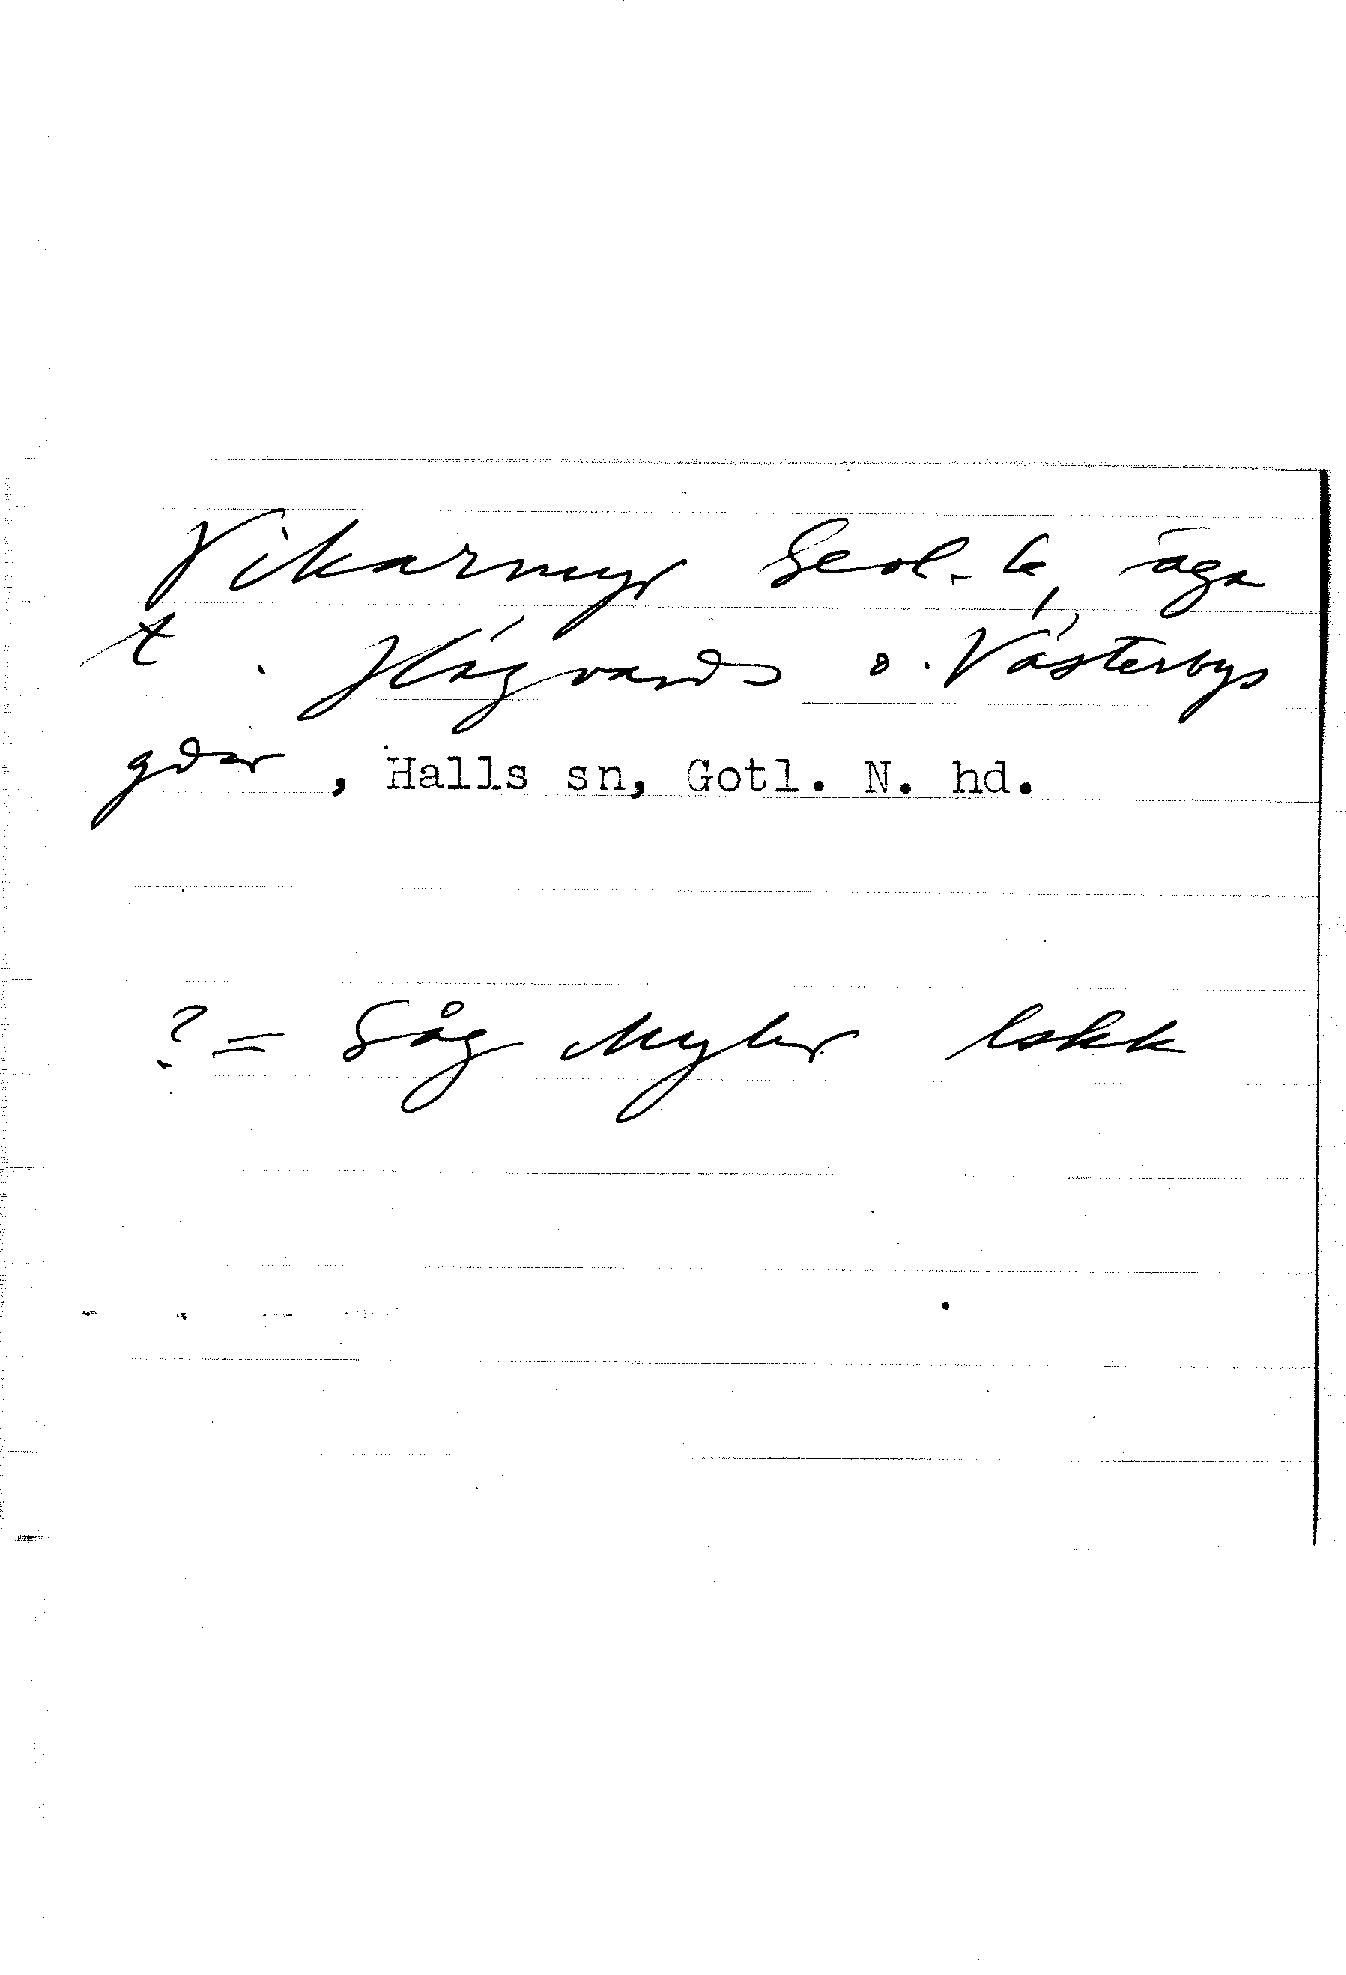 Vikarmyr Geol. k, äga
t. Hägvards o. Västerbys
gdar, Halls sn, Gotl. N. hd.
? = Såg Myhr lskk